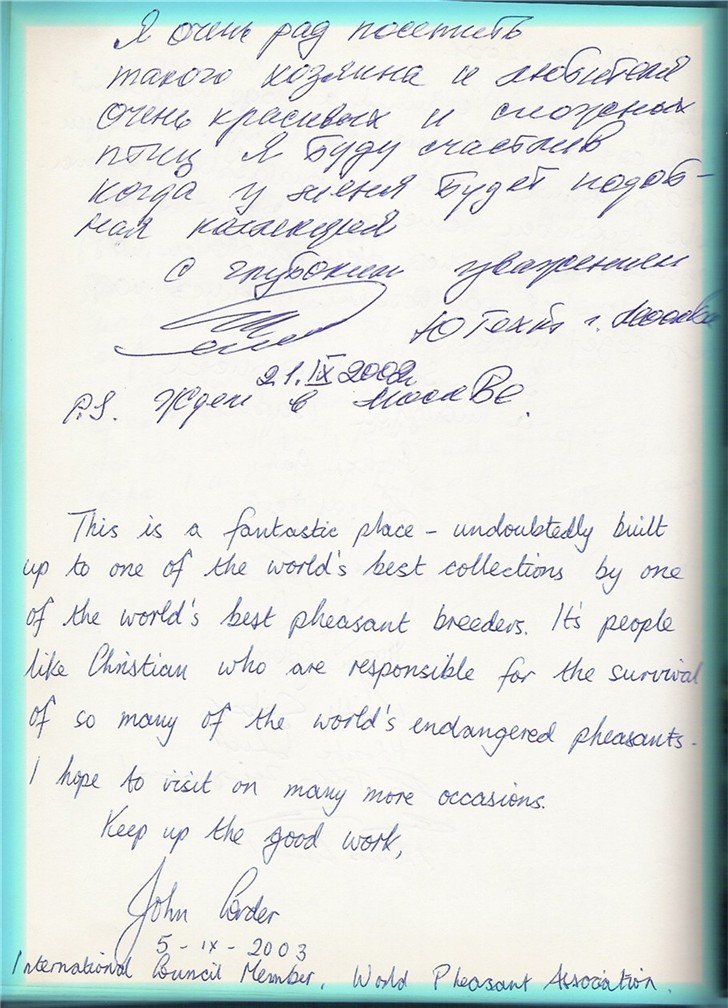 Я очень рад посетить
такого хозяина и любителя
очень красивых и сложных
птиц Я Буду счастлив
когда у меня Будет подоб-
ная коллекция
С глубоким уважением
г. Москва
21.IX 2002
P.S. Ждем в Москве.
This is a fantastic place - undoubtedly built
up to one of the world's best collections by one
of the world's best pheasant breeders. It's people
like Christian who are responsible for the survival
of so many of the world's endangered pheasants.
I hope to visit on many more occasions.
Keep up the good work,
John Corder
5-IX-2003
International Council Member, World Pheasant Association.